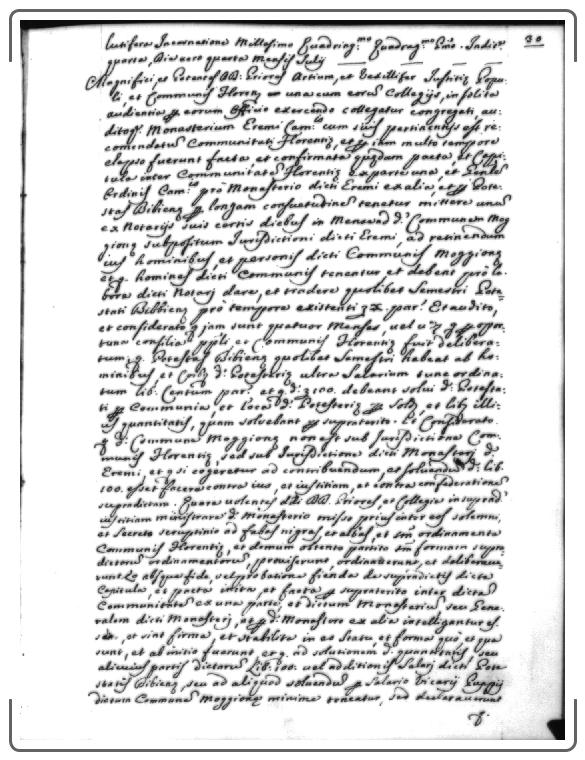 30
lutifera Incarnatione Millesimo Quadring.mo Quadrag.mo Indit.e
quarta, Die vero quarta Mensis Julij
Magnifici, et Potentes DD. Priores Artium, et Vexillifer Iustitię Popu:
li et Communis Florentię una cum eorum Collegijs, in solita
audientia eorum Officio exercendo collegatur congregati, au:
ditoq. Monasterium Eremi Cam.is cum suis pertinentijs est re:
comendatum Communitati Florentię, et iam multo tempore
elapso fuerunt facta, et confirmata quędam pacta, et Capi:
tula inter Communitatem Florentię ex parte una, et Genlem
Ordinis Cam.is pro Monasterio dicti Eremi ex alia, et Pote:
stas Bibienę longam consuetudinem tenetur mittere unum
ex Notarijs suis certis diebus in Mense ad d. Communem Mog
gionę subpositum Iurisdictioni dicti Eremi, ad retinendum
ius hominibus, et personis dicti Communis Moggionę
et q. homines dicti Communis tenentur et debent pro la:
bore dicti Notarij dare, et tradere quolibet Semestri Pote:
stati Bibbienę pro tempore existenti par. Et audito,
et considerato q. iam sunt quatuor Menses, vel oppor:
tuna consilia ppli et Communis Florentię fuit delibera:
tum q. Potestas Bibienę quolibet Semestri habeat ab ho:
minibus, et d. Potesterię ultra Salarium tunc ordina:
tum lib. Centum par. et q. d. 100. debeant solui d. Potesta:
ti Communia, et loca d. Potesterię Sold. et lib. illi:
us quantitatis, quam solvebant supraterito. Et Considerato
q. d. Commune Moggionę non est sub Iurisdictione Com:
munis Florentię, sed sub Iurisdictione dicti Monasterij d.
Eremi, et q. si cogeretur ad contribuendum, et soluendum d. lib.
100. esset facere contra ius, et iustitiam, et contra confederationem
supradictam. Quare volentes dti DD. Priores et Collegia insuprad.
iustitiam ministrare d. Monasterio misso prius inter eos solemni,
et Secreto scruptinio ad fabas nigras, et albas, et ordinamenta
Communis Florentię, et demum obtento partito formam supra:
dictorum ordinamentorum, providerunt, ordinaverunt, et deliberave:
runt absque fide, vel probatione fienda de supradictis dicta
Capitula, et pacta inita, et facta supraterito inter dictam
Communitatem ex una parte, et dictum Monasterium seu Gene:
ralem dicti Monasterij, et d. Monasterio ex alia intelligantur es:
se, et sint firma, et stabilita in eo statu, et forma quo, et qua
sunt, et ab initio fuerunt, et q. ad solutionem d. quantitatis seu
alicuius partis dictarum Lib. 100. vel additionis Salarij dicti Pote
statis Bibienę, seu ad aliquod soluendum Salario Vicarij Puppij
dictum Commune Moggionę minime teneatur, sed declaraverunt